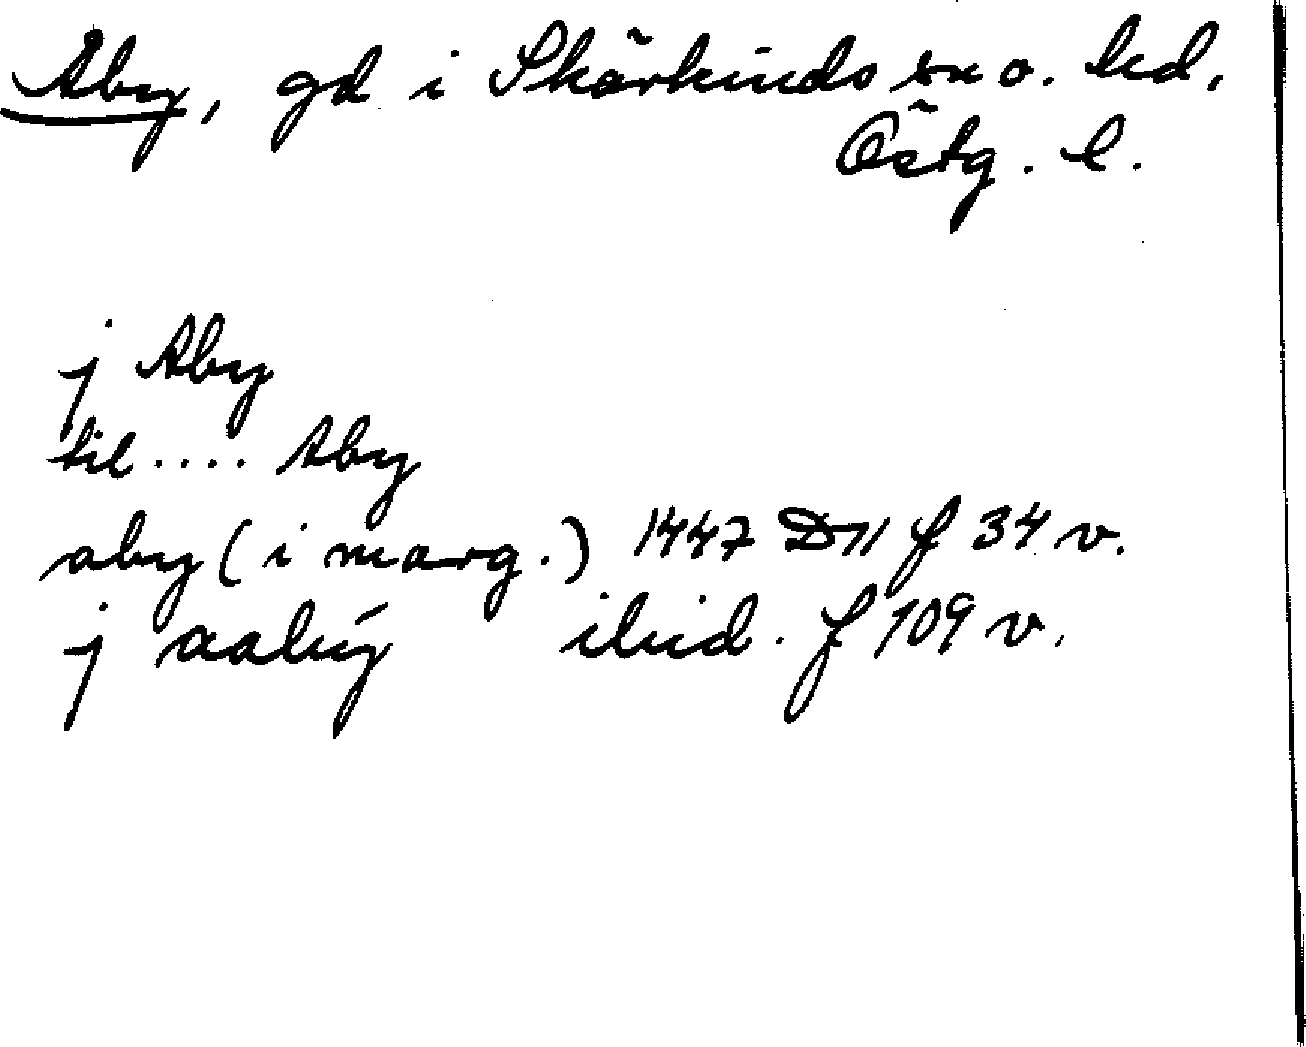 Åby, gd i Skärkinds sn o. hd,
Östg. l.
j Aby
til .... Aby
aby (i marg.) 1447 D 11 f 34 v.
j aabẏ ibid. f 109 v.